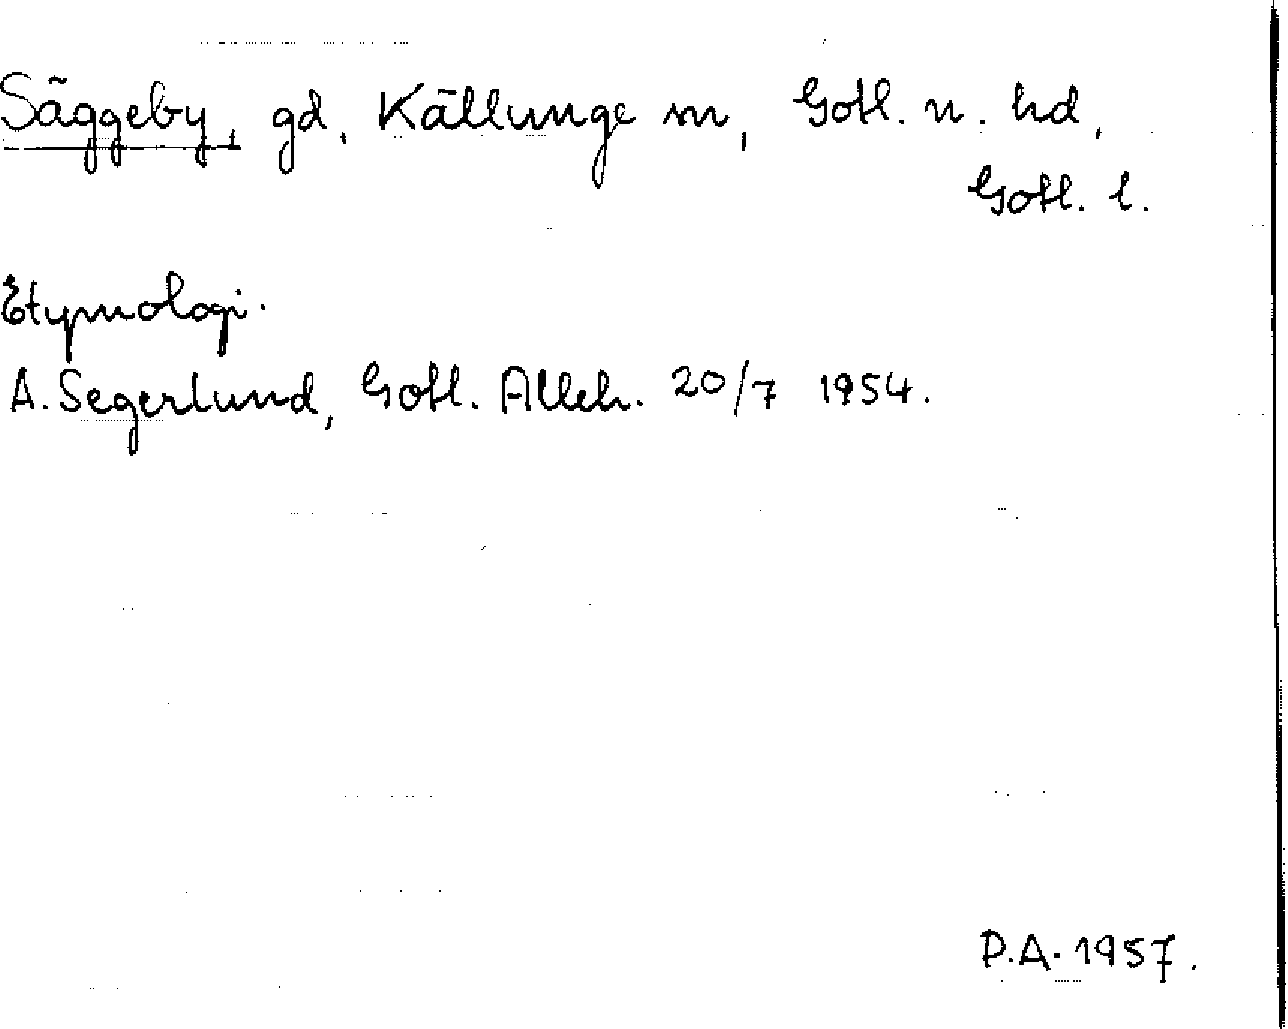 Säggeby, gd, Källunge sn, Gotl. n. hd,
Gotl. l.
Etymologi.
A. Segerlund, Gotl. Alleh. 20/7 1954.
P.A. 1957.